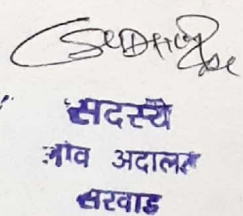 सदस्ये
गांव अदालत
सरवाड